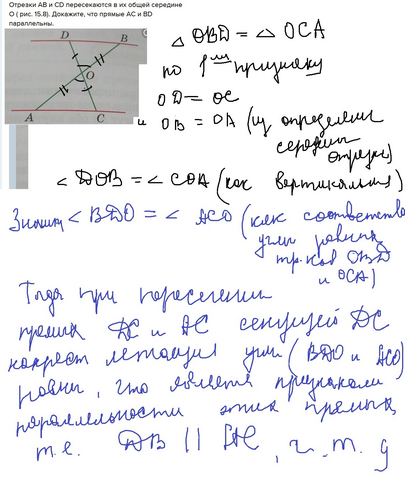 Отрезки AB и CD пересекаются в их общей середине
O ( рис. 15.8). Докажите, что прямые AC и BD
параллельны.
D
B
O
A
C
△ OBD = △ OCA
по 1ᵐᵘ признаку
OD = OC
и OB = OA (из определения
середины
отрезка)
∠ DOB = ∠ COA (как вертикальные)
Значит ∠ BDO = ∠ ACO (как соответств
углы равных
тр-ков OBD
и OCA)
Тогда при пересечении
прямых DC и AC секущей DC
накрест лежащие углы (BDO и ACO)
равны, что является признаком
параллельности этих прямых
т.е. DB || AC, ч.т.д